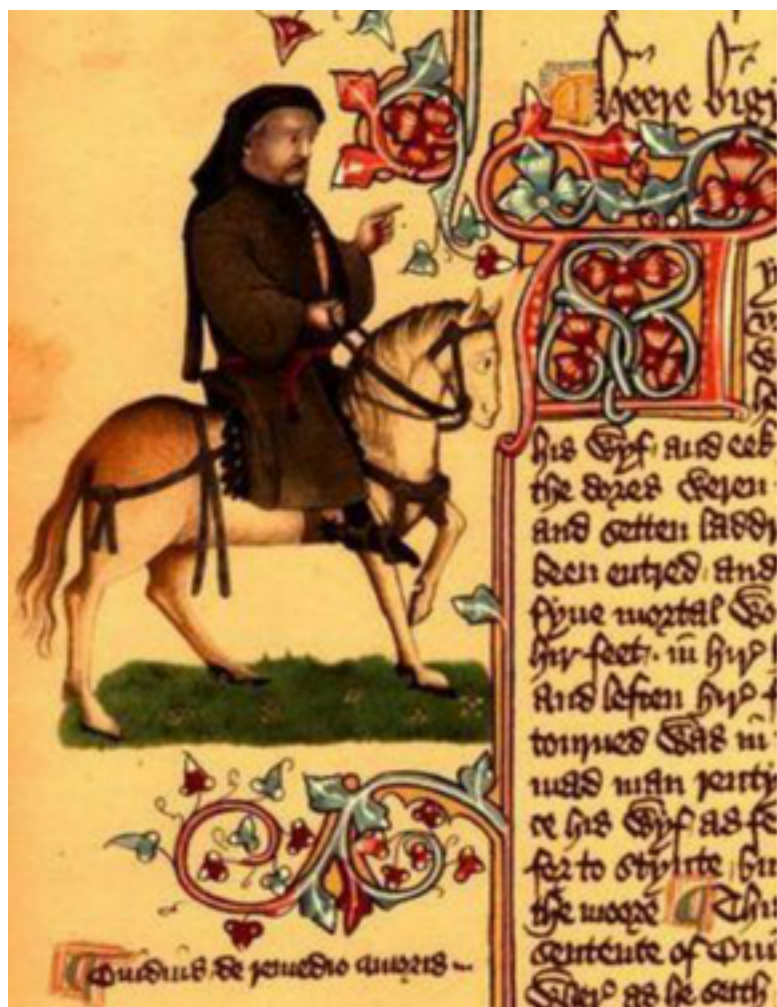 heere bigy
his wyf / and eek
the dores weren
and setten laddr
been entred / and
fyue mortal wo
hir feet / in hir
and leften hir f
tourned was in
mad man renty
ce his wyf as fe
for to stynte / bu
the moore ¶ This
sentence of Oui
wher as he seith
¶ Ouidius de remedio amoris